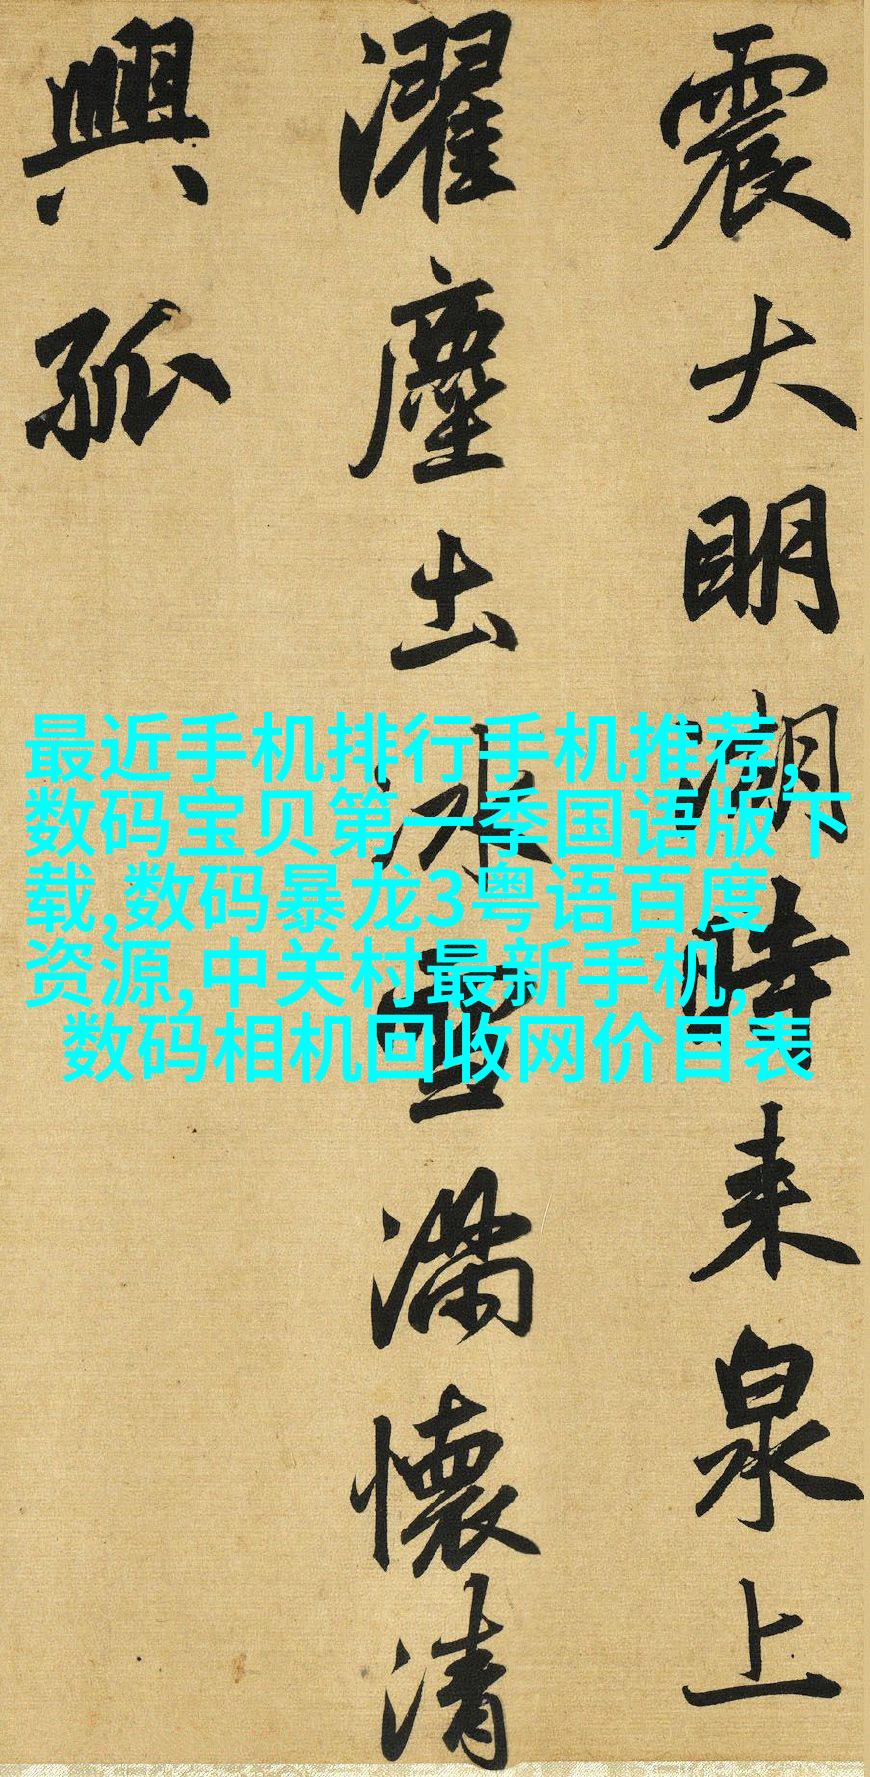 震大明湖時来泉上
濯塵土冰雪滿懷清
興孤
最近手机排行手机推荐,
数码宝贝第一季国语版下
载,数码暴龙3粤语百度
资源,中关村最新手机,
数码相机回收网价目表